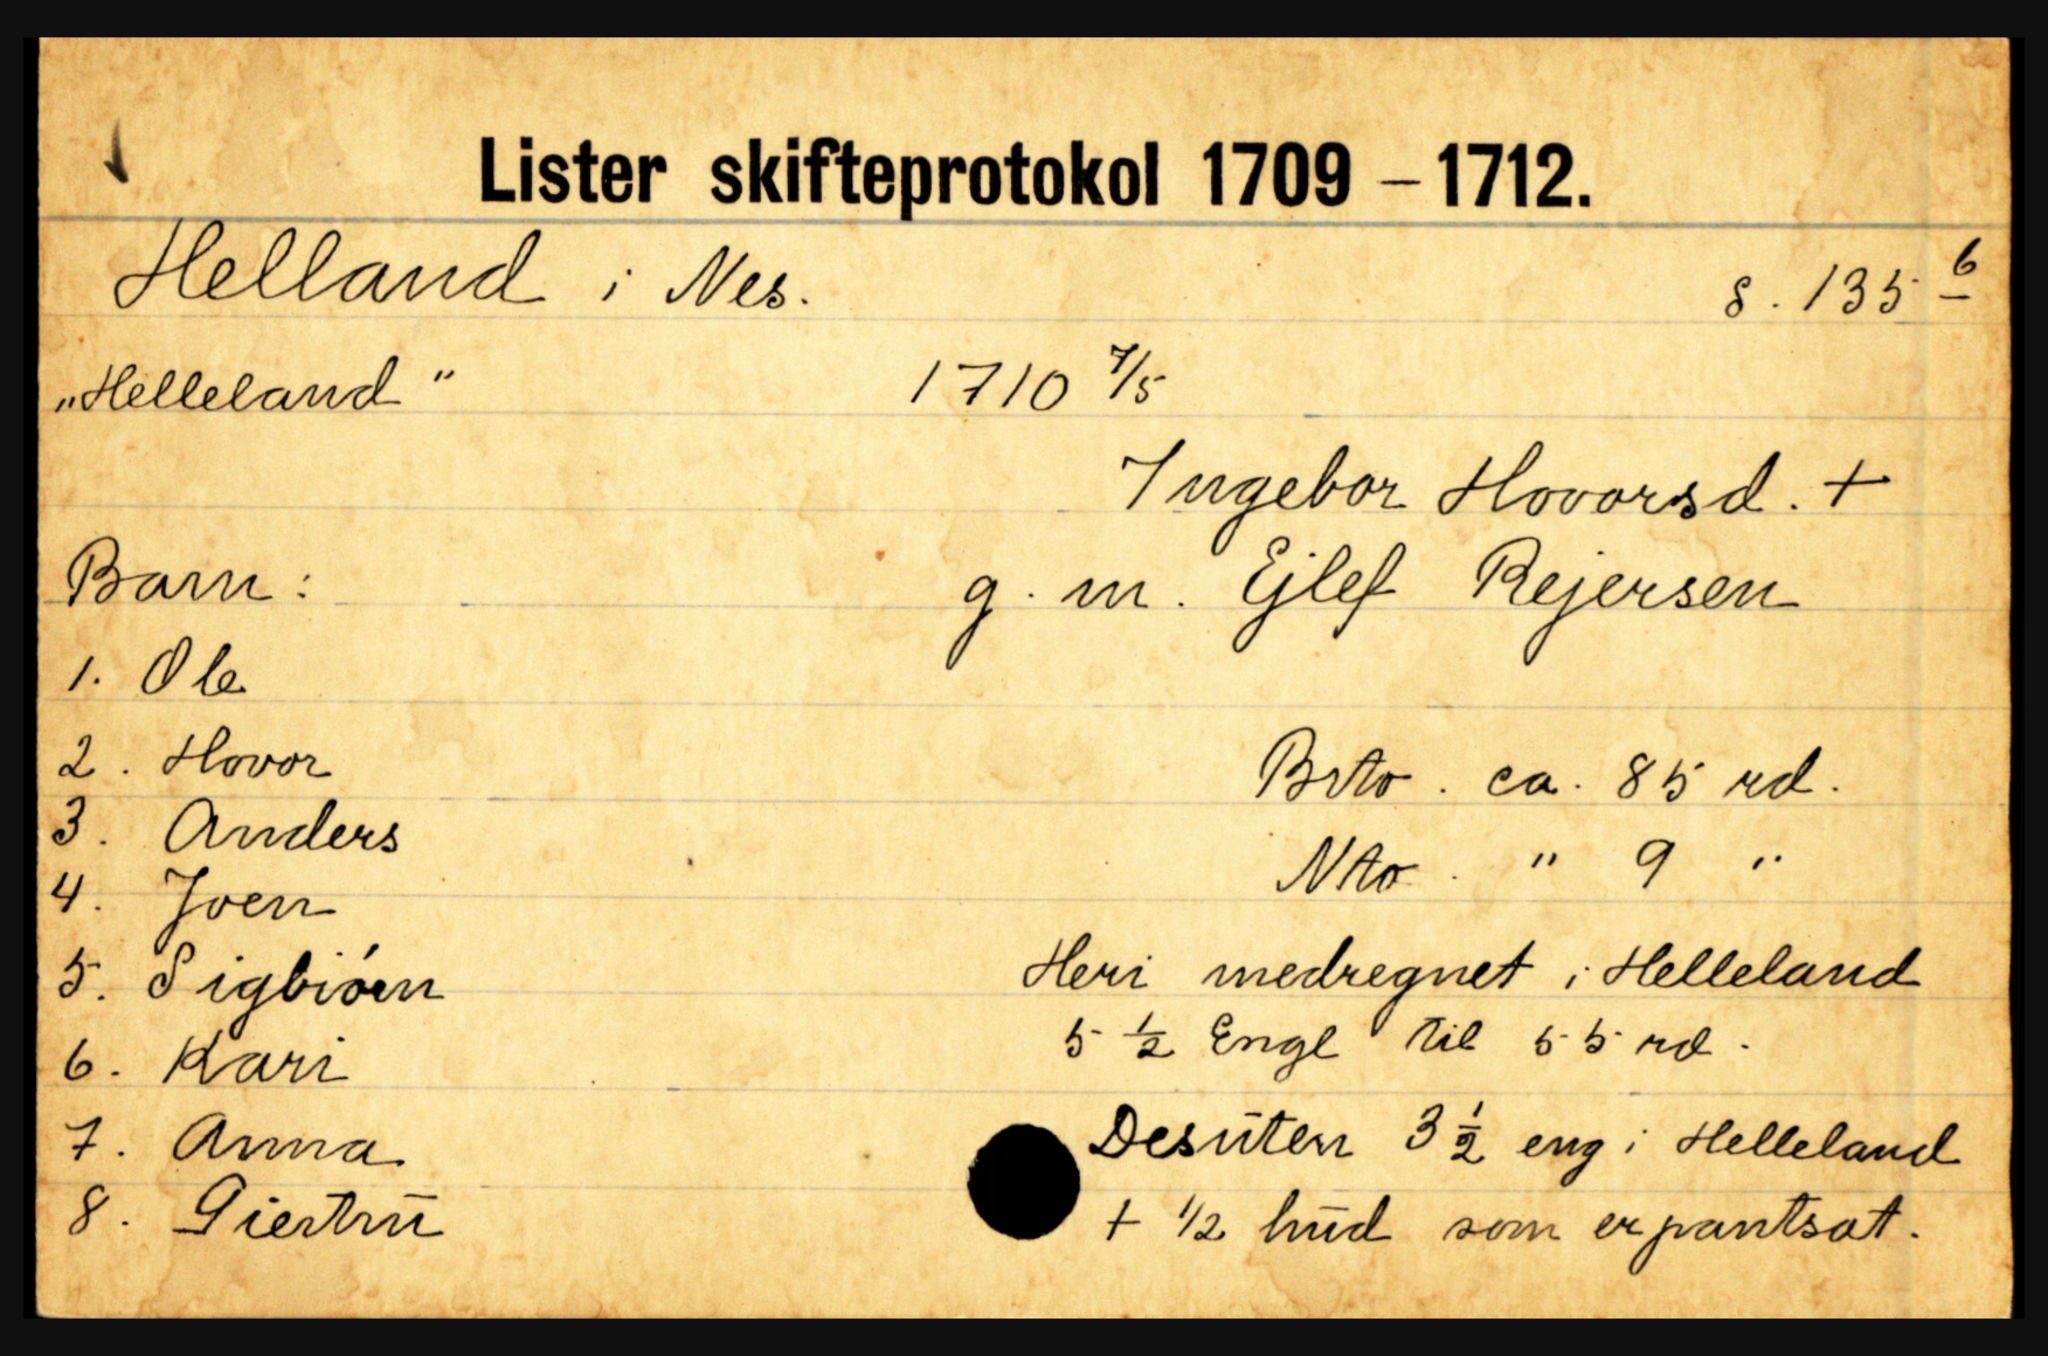 Lister skifteprotokol 1709 – 1712.
Helland i Nes. s. 135 6
„Helleland" 1710 7/5
Ingebor Hovorsd. +
Barn: g. m. Ejlef Rejersen
1. Ole
2. Hovor Brto. ca. 85 rd.
3. Anders
Nto. " 9 "
4. Joen
5. Sigbiørn Heri medregnet i Helleland
5 1/2 Engl til 55 rd.
6. Kari
7. Anna Desuten 3 1/2 eng i Helleland
8. Giertru + 1/2 hud som er pantsat.